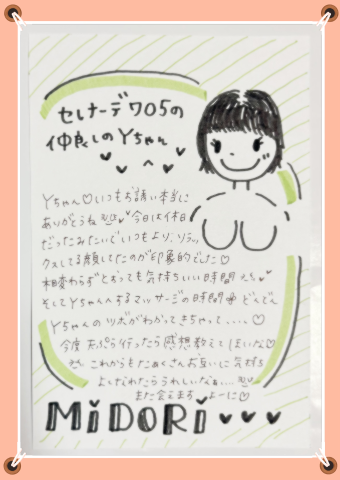 セレナーデ705の
仲良しのYちゃん
Yちゃん♡いつもお誘い本当に
ありがとうね 今日は休日
だったみたいでいつもより、リラッ
クスしてる顔してたのが印象的でした♡
相変わらずとおっても気持ちいい時間
そしてYちゃんへするマッサージの時間 どんどん
Yちゃんのツボがわかってきちゃって、、、、♡
今度 行ったら感想教えてほしいな♡
これからもたぁくさんお互いに気持ち
よくなれたらうれしいなぁ...
また会えますように♡
MiDORi